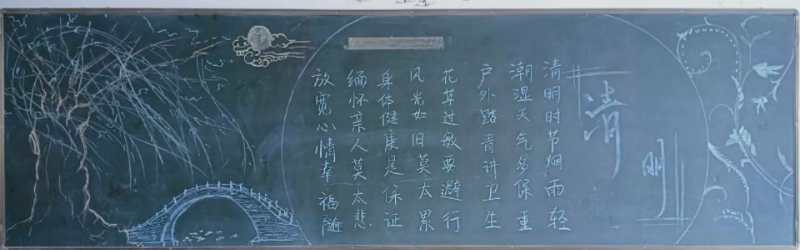 清明
清明时节烟雨轻
潮湿天气多保重
户外踏青讲卫生
花草过敏要避行
风光如旧莫太累
身体健康是保证
缅怀亲人莫太悲
放宽心情幸福随